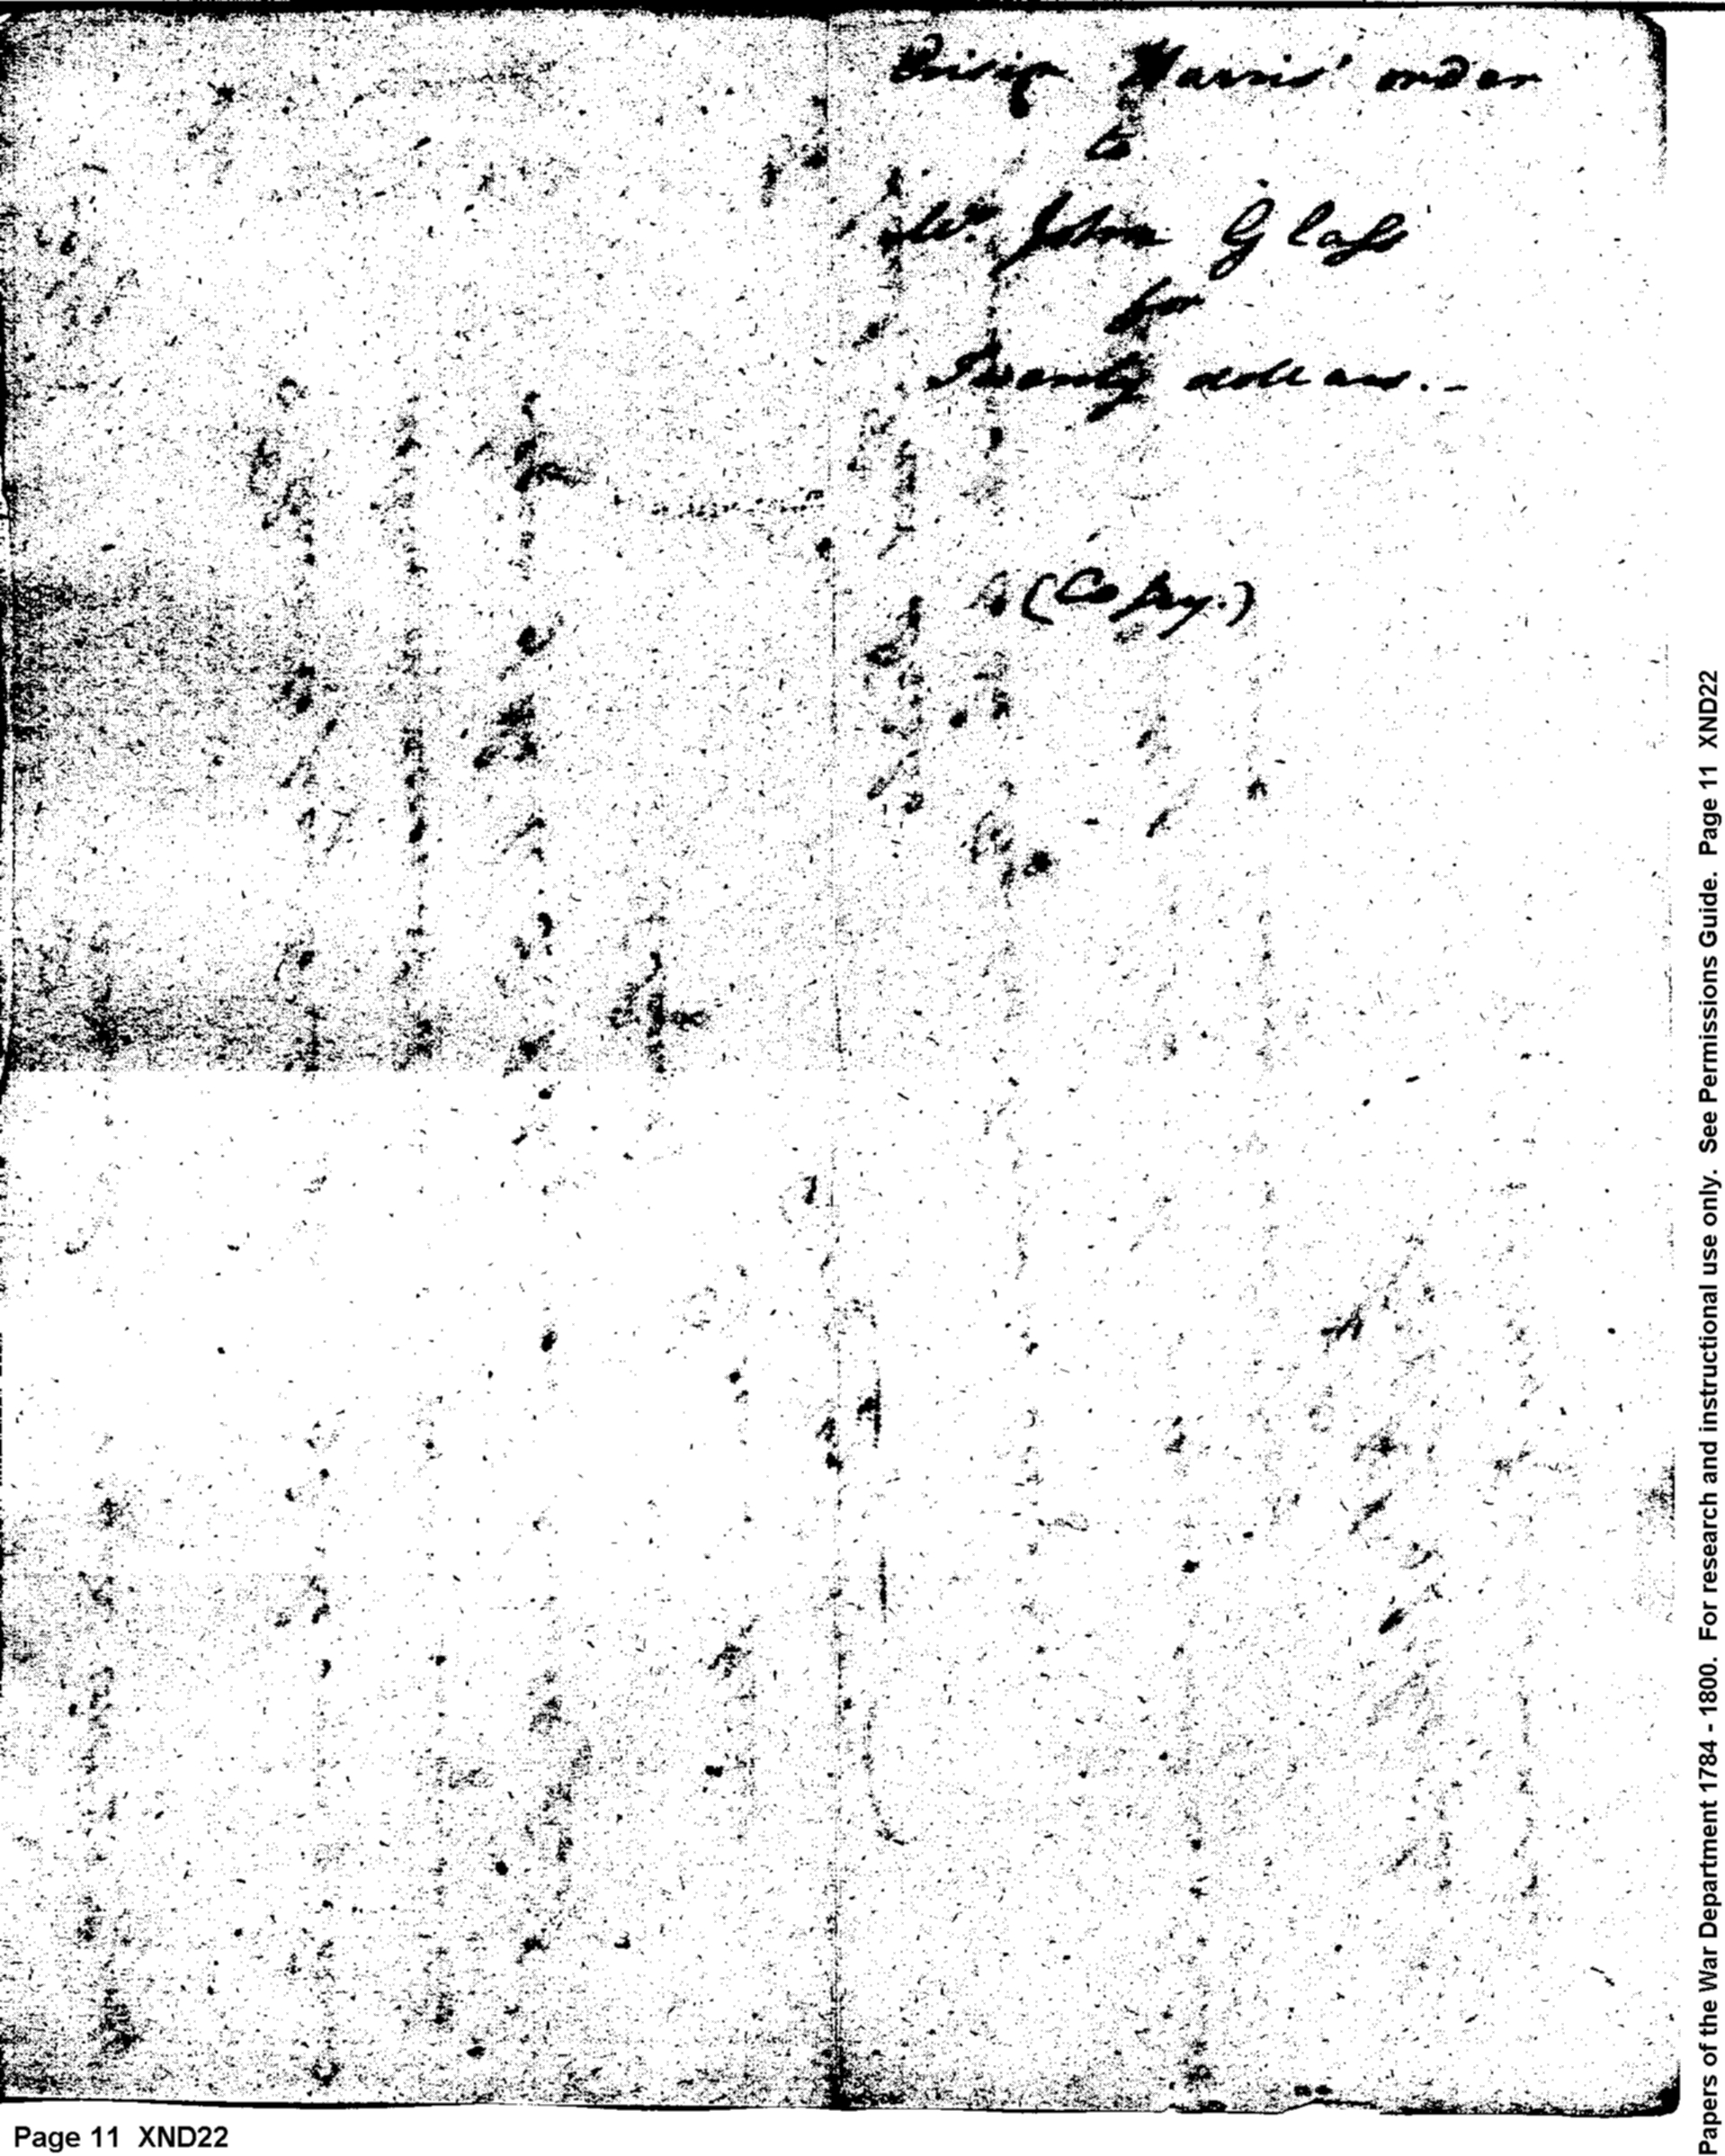 Ensign Harris' order
to
Mr. John Glass
for
Twenty dollars.-
(Copy.)
Page 11 XND22
Papers of the War Department 1784 - 1800. For research and instructional use only. See Permissions Guide. Page 11 XND22